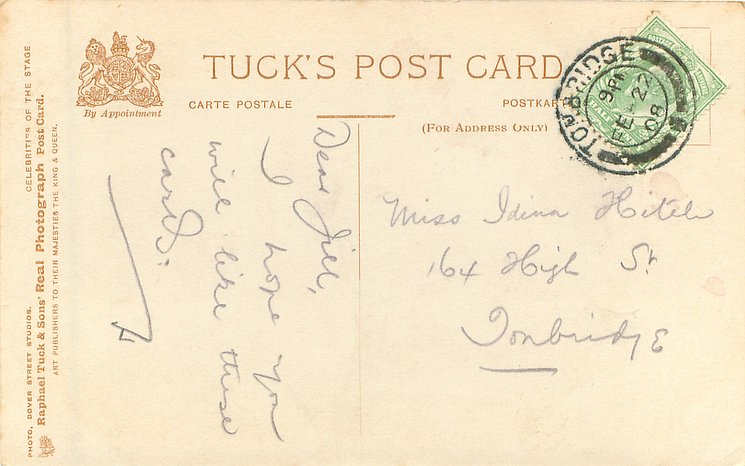 TUCK'S POST CARD
CARTE POSTALE
POSTKART
(FOR ADDRESS ONLY)
By Appointment
TONBRIDGE
9 PM
FE 22
08
Dear Jill,
I hope you
will like these
cards.
Miss Idina Hitch
164 High St
Tonbridge
CELEBRITIES OF THE STAGE
PHOTO, DOVER STREET STUDIOS.
Raphael Tuck & Sons' Real Photograph Post Card.
ART PUBLISHERS TO THEIR MAJESTIES THE KING & QUEEN.